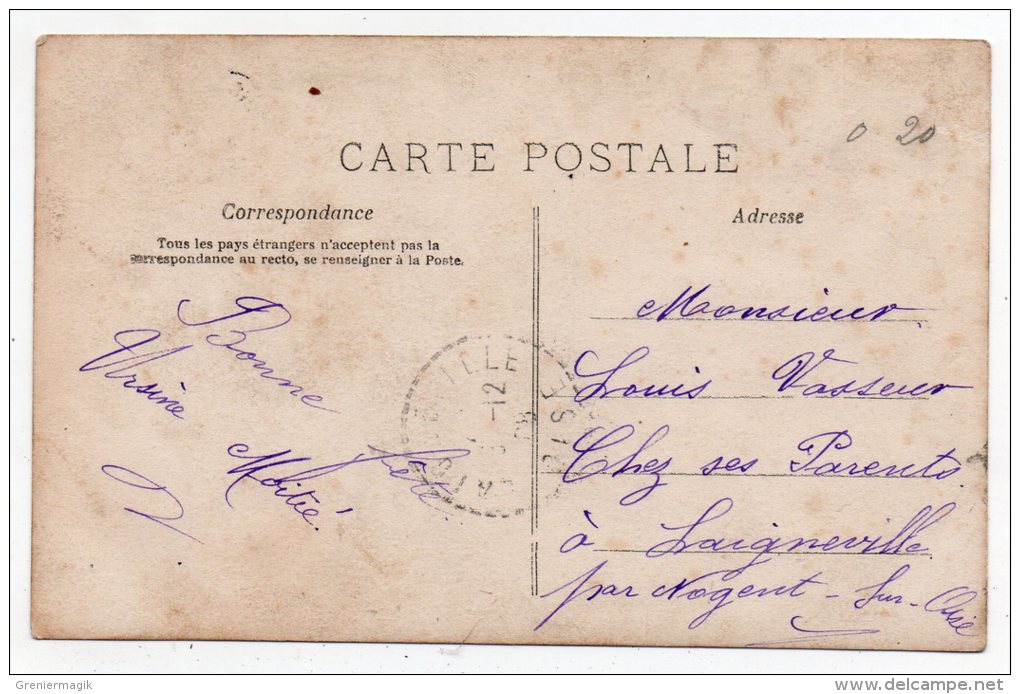 0 20
CARTE POSTALE
Correspondance
Tous les pays étrangers n'acceptent pas la
correspondance au recto, se renseigner à la Poste.
Bonne fête
Ursine
Moitié!
Adresse
Monsieur
Louis Vasseur
Chez ses Parents
à Laigneville
par Nogent-Sur-Oise
LAIGNEVILLE
OISE
12
Greniermagik
www.delcampe.net